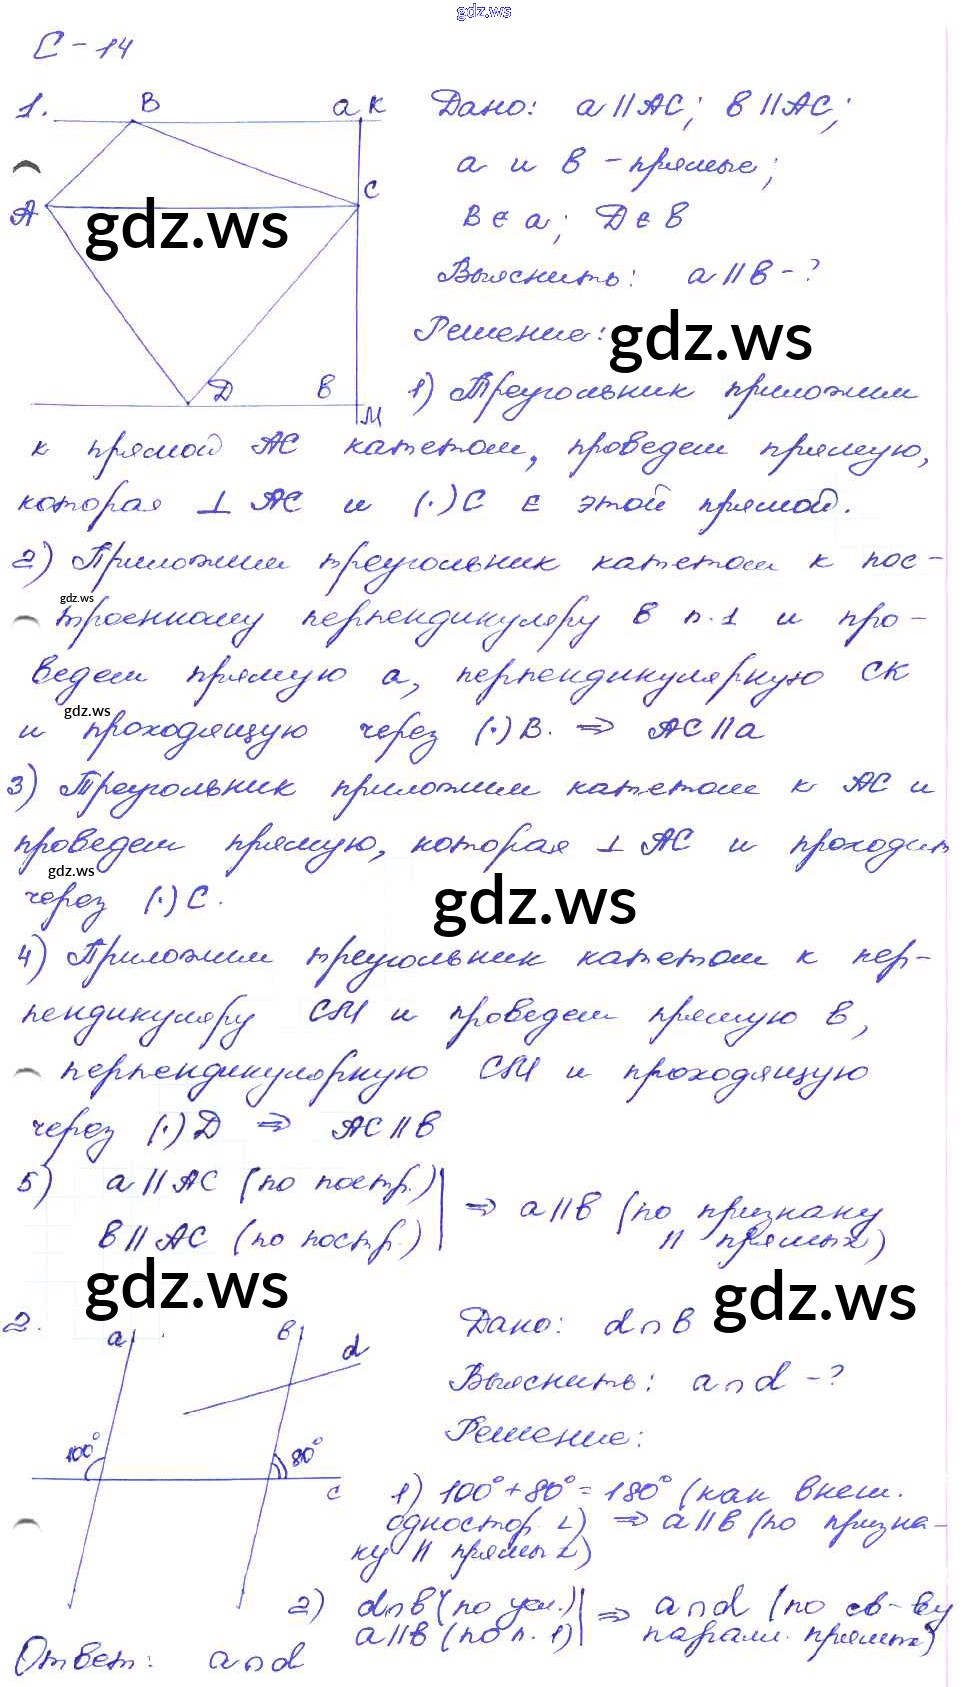 gdz.ws
С-14
1. В а К Дано: а || АС; в || АС;
а и в - прямые;
А gdz.ws С В ∈ а; D ∈ в
Выяснить: а || в - ?
Решение: gdz.ws
D в М 1) Треугольник приложим
к прямой АС катетом, проведем прямую,
которая ⊥ АС и (·) С ∈ этой прямой.
2) Приложим треугольник катетом к пос-
gdz.ws
троенному перпендикуляру в п.1 и про-
ведем прямую а, перпендикулярную СК
gdz.ws
и проходящую через (·) В. ⇒ АС || а
3) Треугольник приложим катетом к АС и
проведем прямую, которая ⊥ АС и проходит
gdz.ws
через (·) С. gdz.ws
4) Приложим треугольник катетом к пер-
пендикуляру СМ и проведем прямую в,
перпендикулярную СМ и проходящую
через (·) D ⇒ АС || в
5) а || АС (по постр.)
в || АС (по постр.) ⇒ а || в (по признаку
|| прямых)
gdz.ws gdz.ws
2. а в d Дано: d ∩ в
Выяснить: а ∩ d - ?
Решение:
100° 80° с 1) 100° + 80° = 180° (как внеш.
одностор. ∠) ⇒ а || в (по призна-
ку || прямых)
2) d ∩ в (по усл.)
а || в (по п. 1) ⇒ а ∩ d (по св-ву
паралл. прямых)
Ответ: а ∩ d